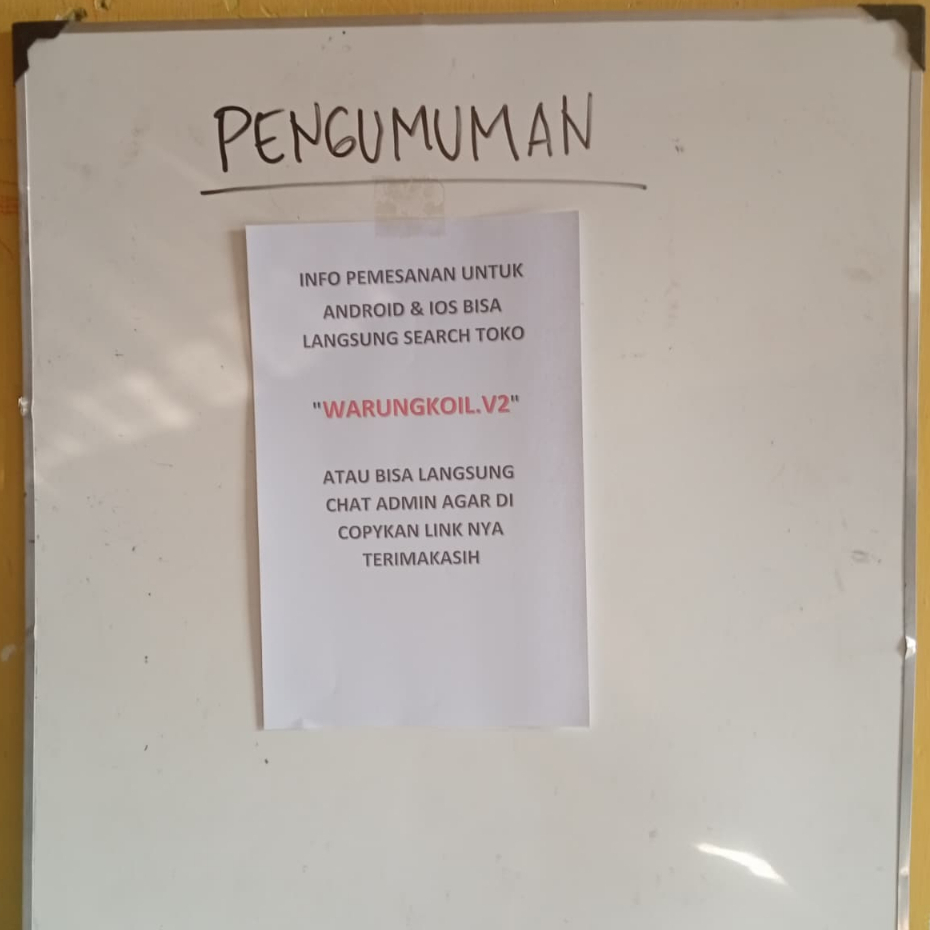 PENGUMUMAN
INFO PEMESANAN UNTUK
ANDROID & IOS BISA
LANGSUNG SEARCH TOKO
"WARUNGKOIL.V2"
ATAU BISA LANGSUNG
CHAT ADMIN AGAR DI
COPYKAN LINK NYA
TERIMAKASIH